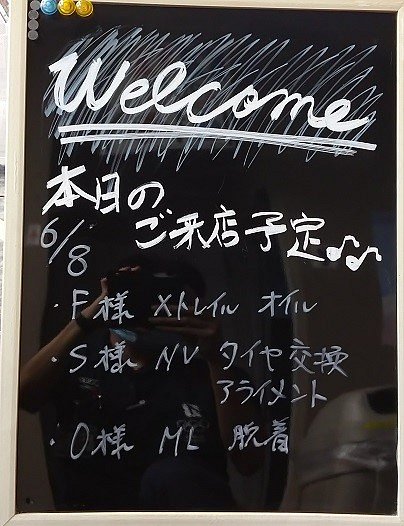 Welcome
本日の
ご来店予定♪♫
6/8
・F様 Xトレイル オイル
・S様 NV タイヤ交換
アライメント
・O様 ML 脱着